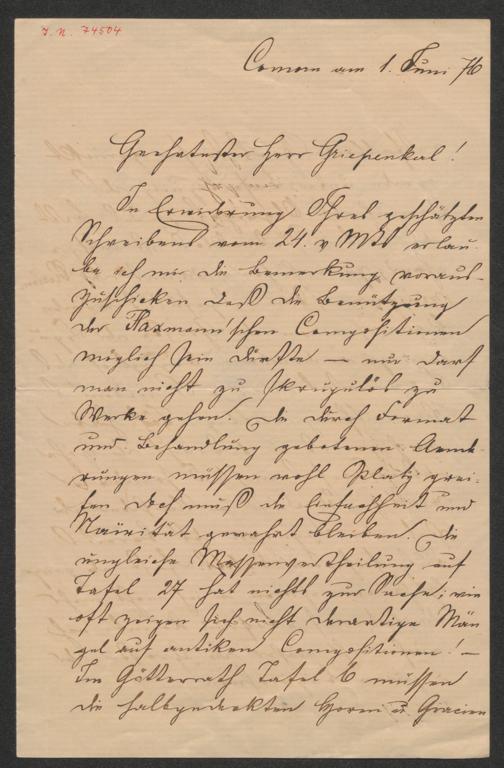 J. N. 74504
Comorn am 1. Juni 76
Geehrtester Herr Griepenkerl!
In Erwiderung Ihres geschätzten
Schreibens vom 24. v Mts erlau-
be ich mir die Bemerkung voraus-
zuschicken daß die Benützung
der Flaxmann'schen Compositionen
möglich sein dürfte — nur darf
man nicht zu skrupulös zu
Werke gehen. Die durch Format
und Behandlung gebotenen Aende-
rungen müssen wohl Platz grei-
fen doch muß die Einfachheit und
Naivität gewahrt bleiben. Die
ungleiche Massenvertheilung auf
Tafel 27 hat nichts zur Sache; wie
oft zeigen sich nicht derartige Män-
gel auf antiken Compositionen! —
Im Götterrath Tafel 6 müssen
die halbgedeckten Horen u. Gracien